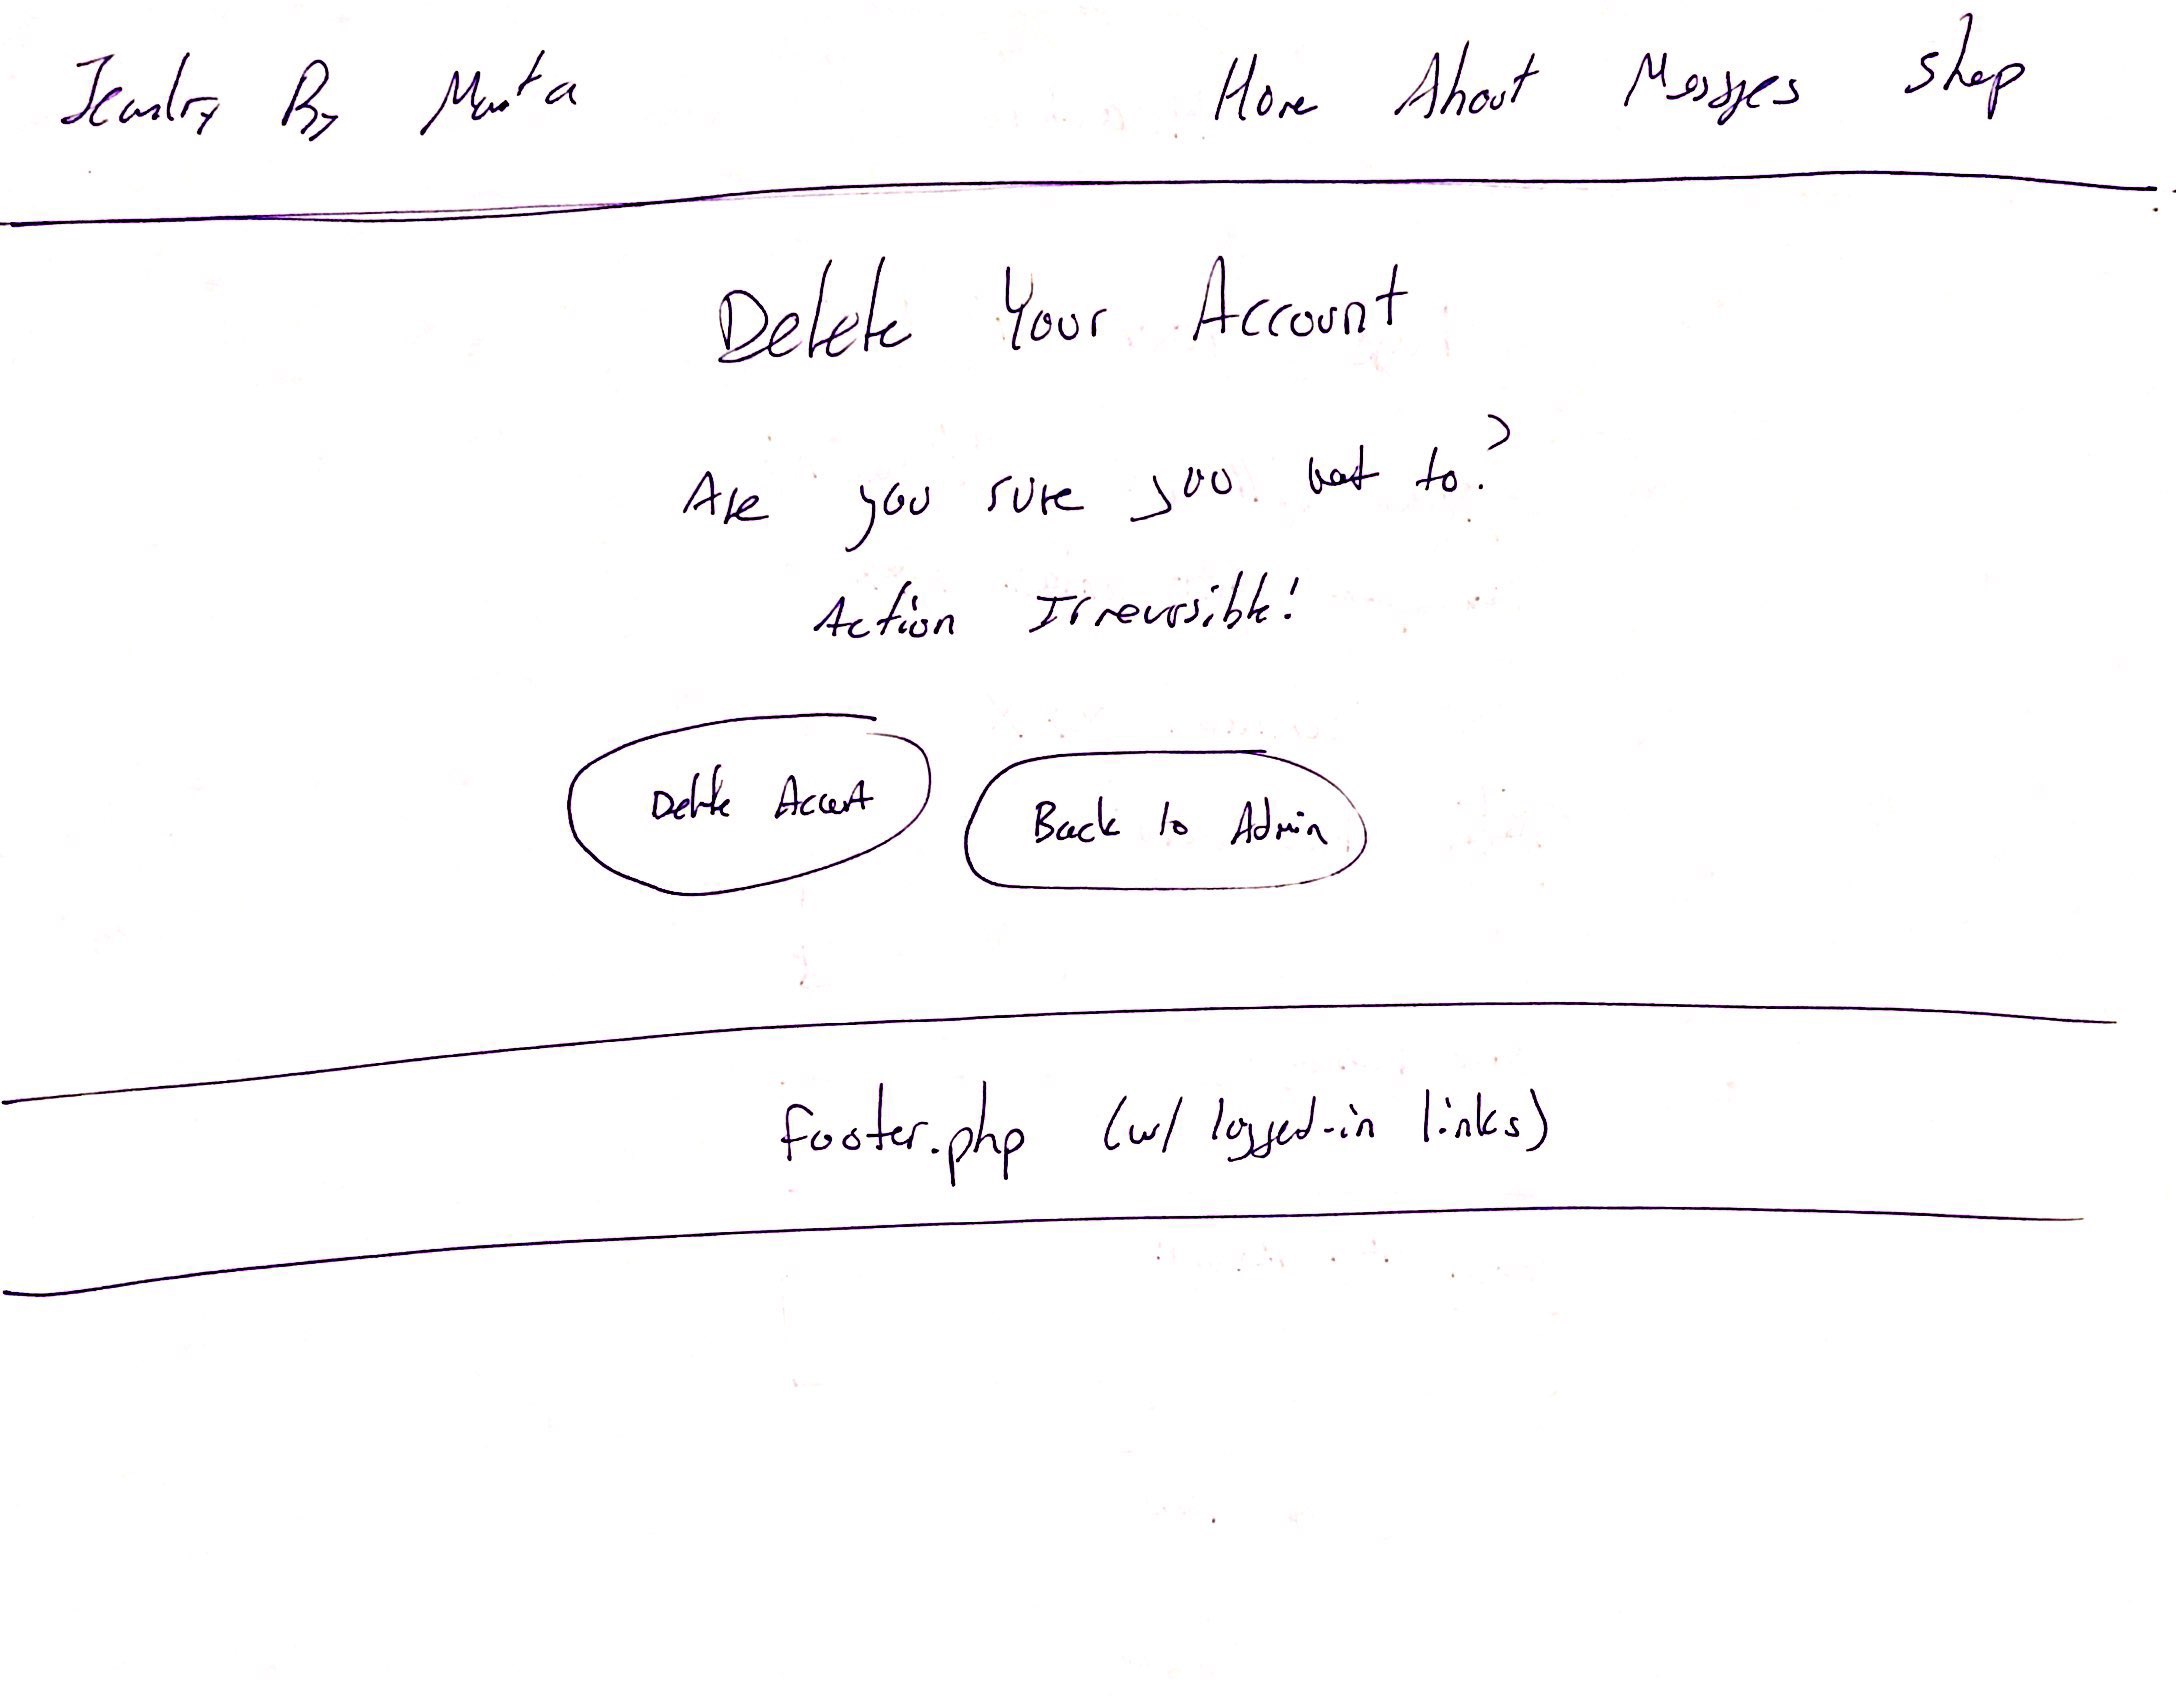 Jewelry By Marta
Home About Messages Shop
Delete Your Account
Are you sure you want to?
Action Irreversible!
Delete Account
Back to Admin
footer.php (w/ logged-in links)